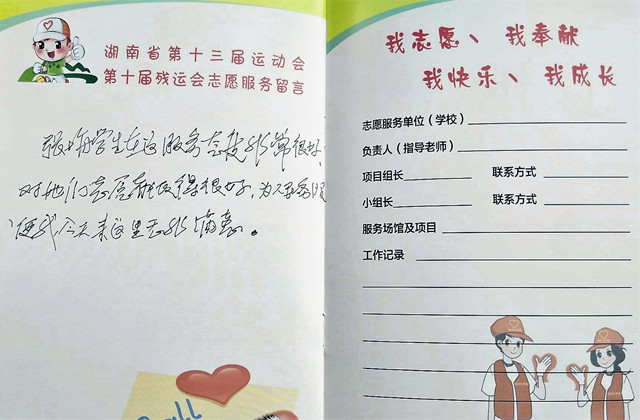 湖南省第十三届运动会
第十届残运会志愿服务留言
学生在这服务态度非常很好,
对他们志愿都做得很好,为
使我今天来这里非常满意。
我志愿、我奉献
我快乐、我成长
志愿服务单位（学校）
负责人（指导老师）
项目组长 联系方式
小组长 联系方式
服务场馆及项目
工作记录